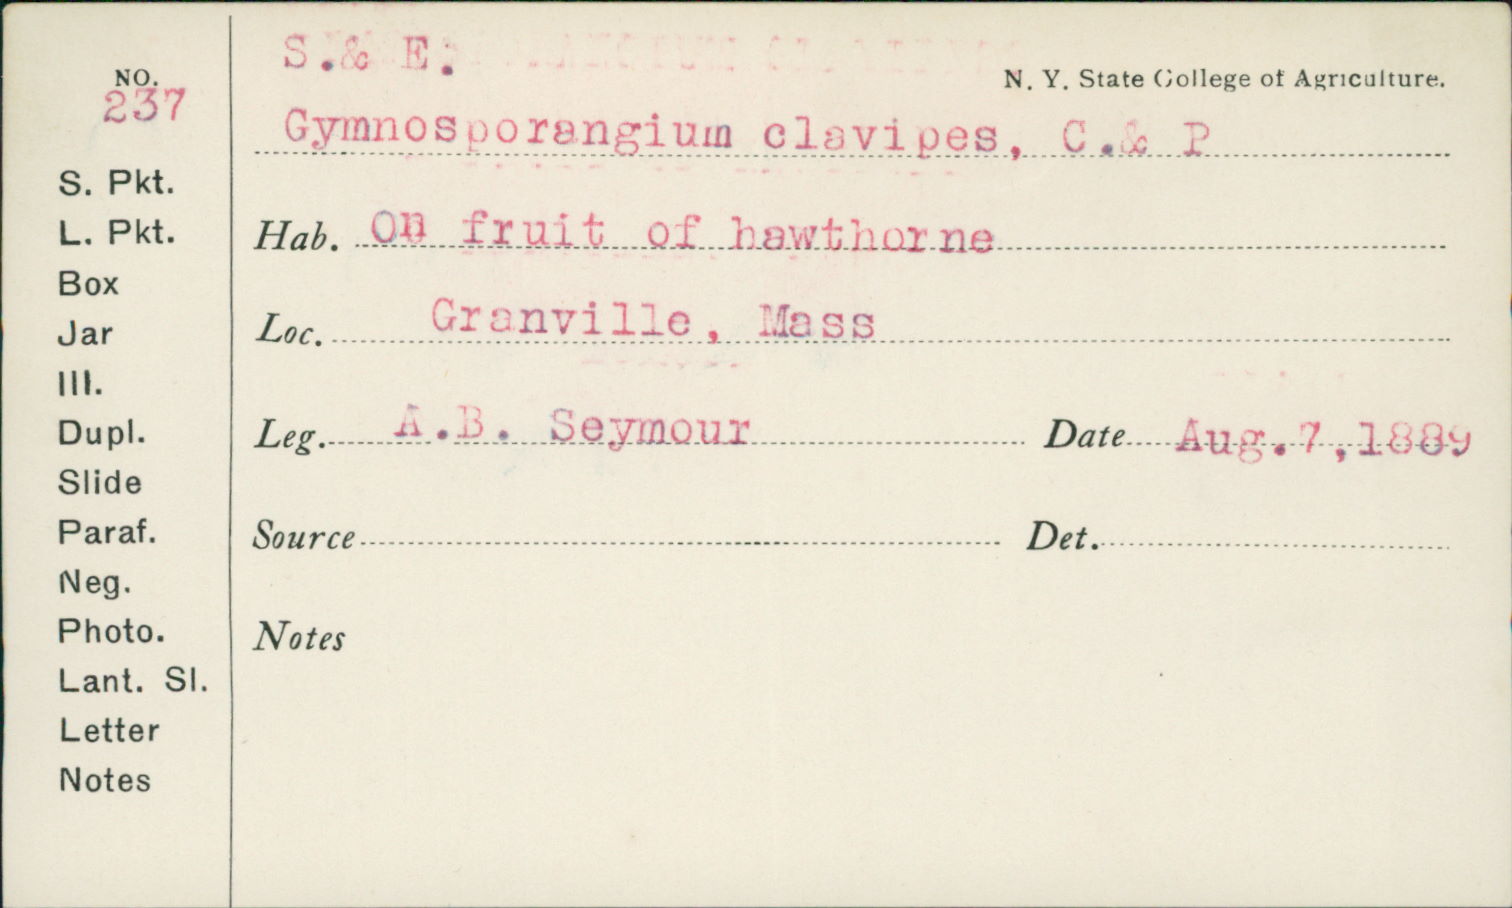 S.& E.
N. Y. State College of Agriculture.
NO.
237
Gymnosporangium clavipes, C.& P
S. Pkt.
L. Pkt.
Box
Jar
Ill.
Dupl.
Slide
Paraf.
Neg.
Photo.
Lant. Sl.
Letter
Notes
Hab. On fruit of hawthorne
Loc. Granville, Mass
Leg. A.B. Seymour Date Aug.7,1889
Source Det.
Notes